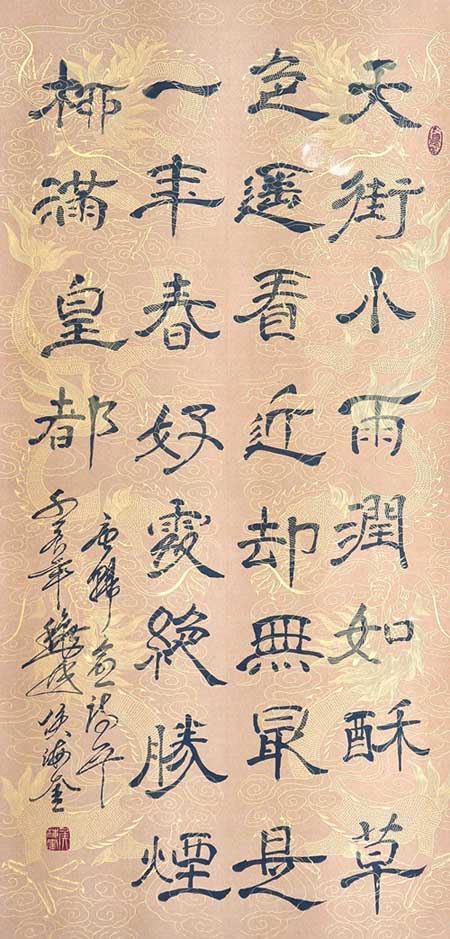 天街小雨潤如酥草
色遥看近却無最是
一年春好處絶勝煙
柳滿皇都
唐韓愈詩
年 侯海金